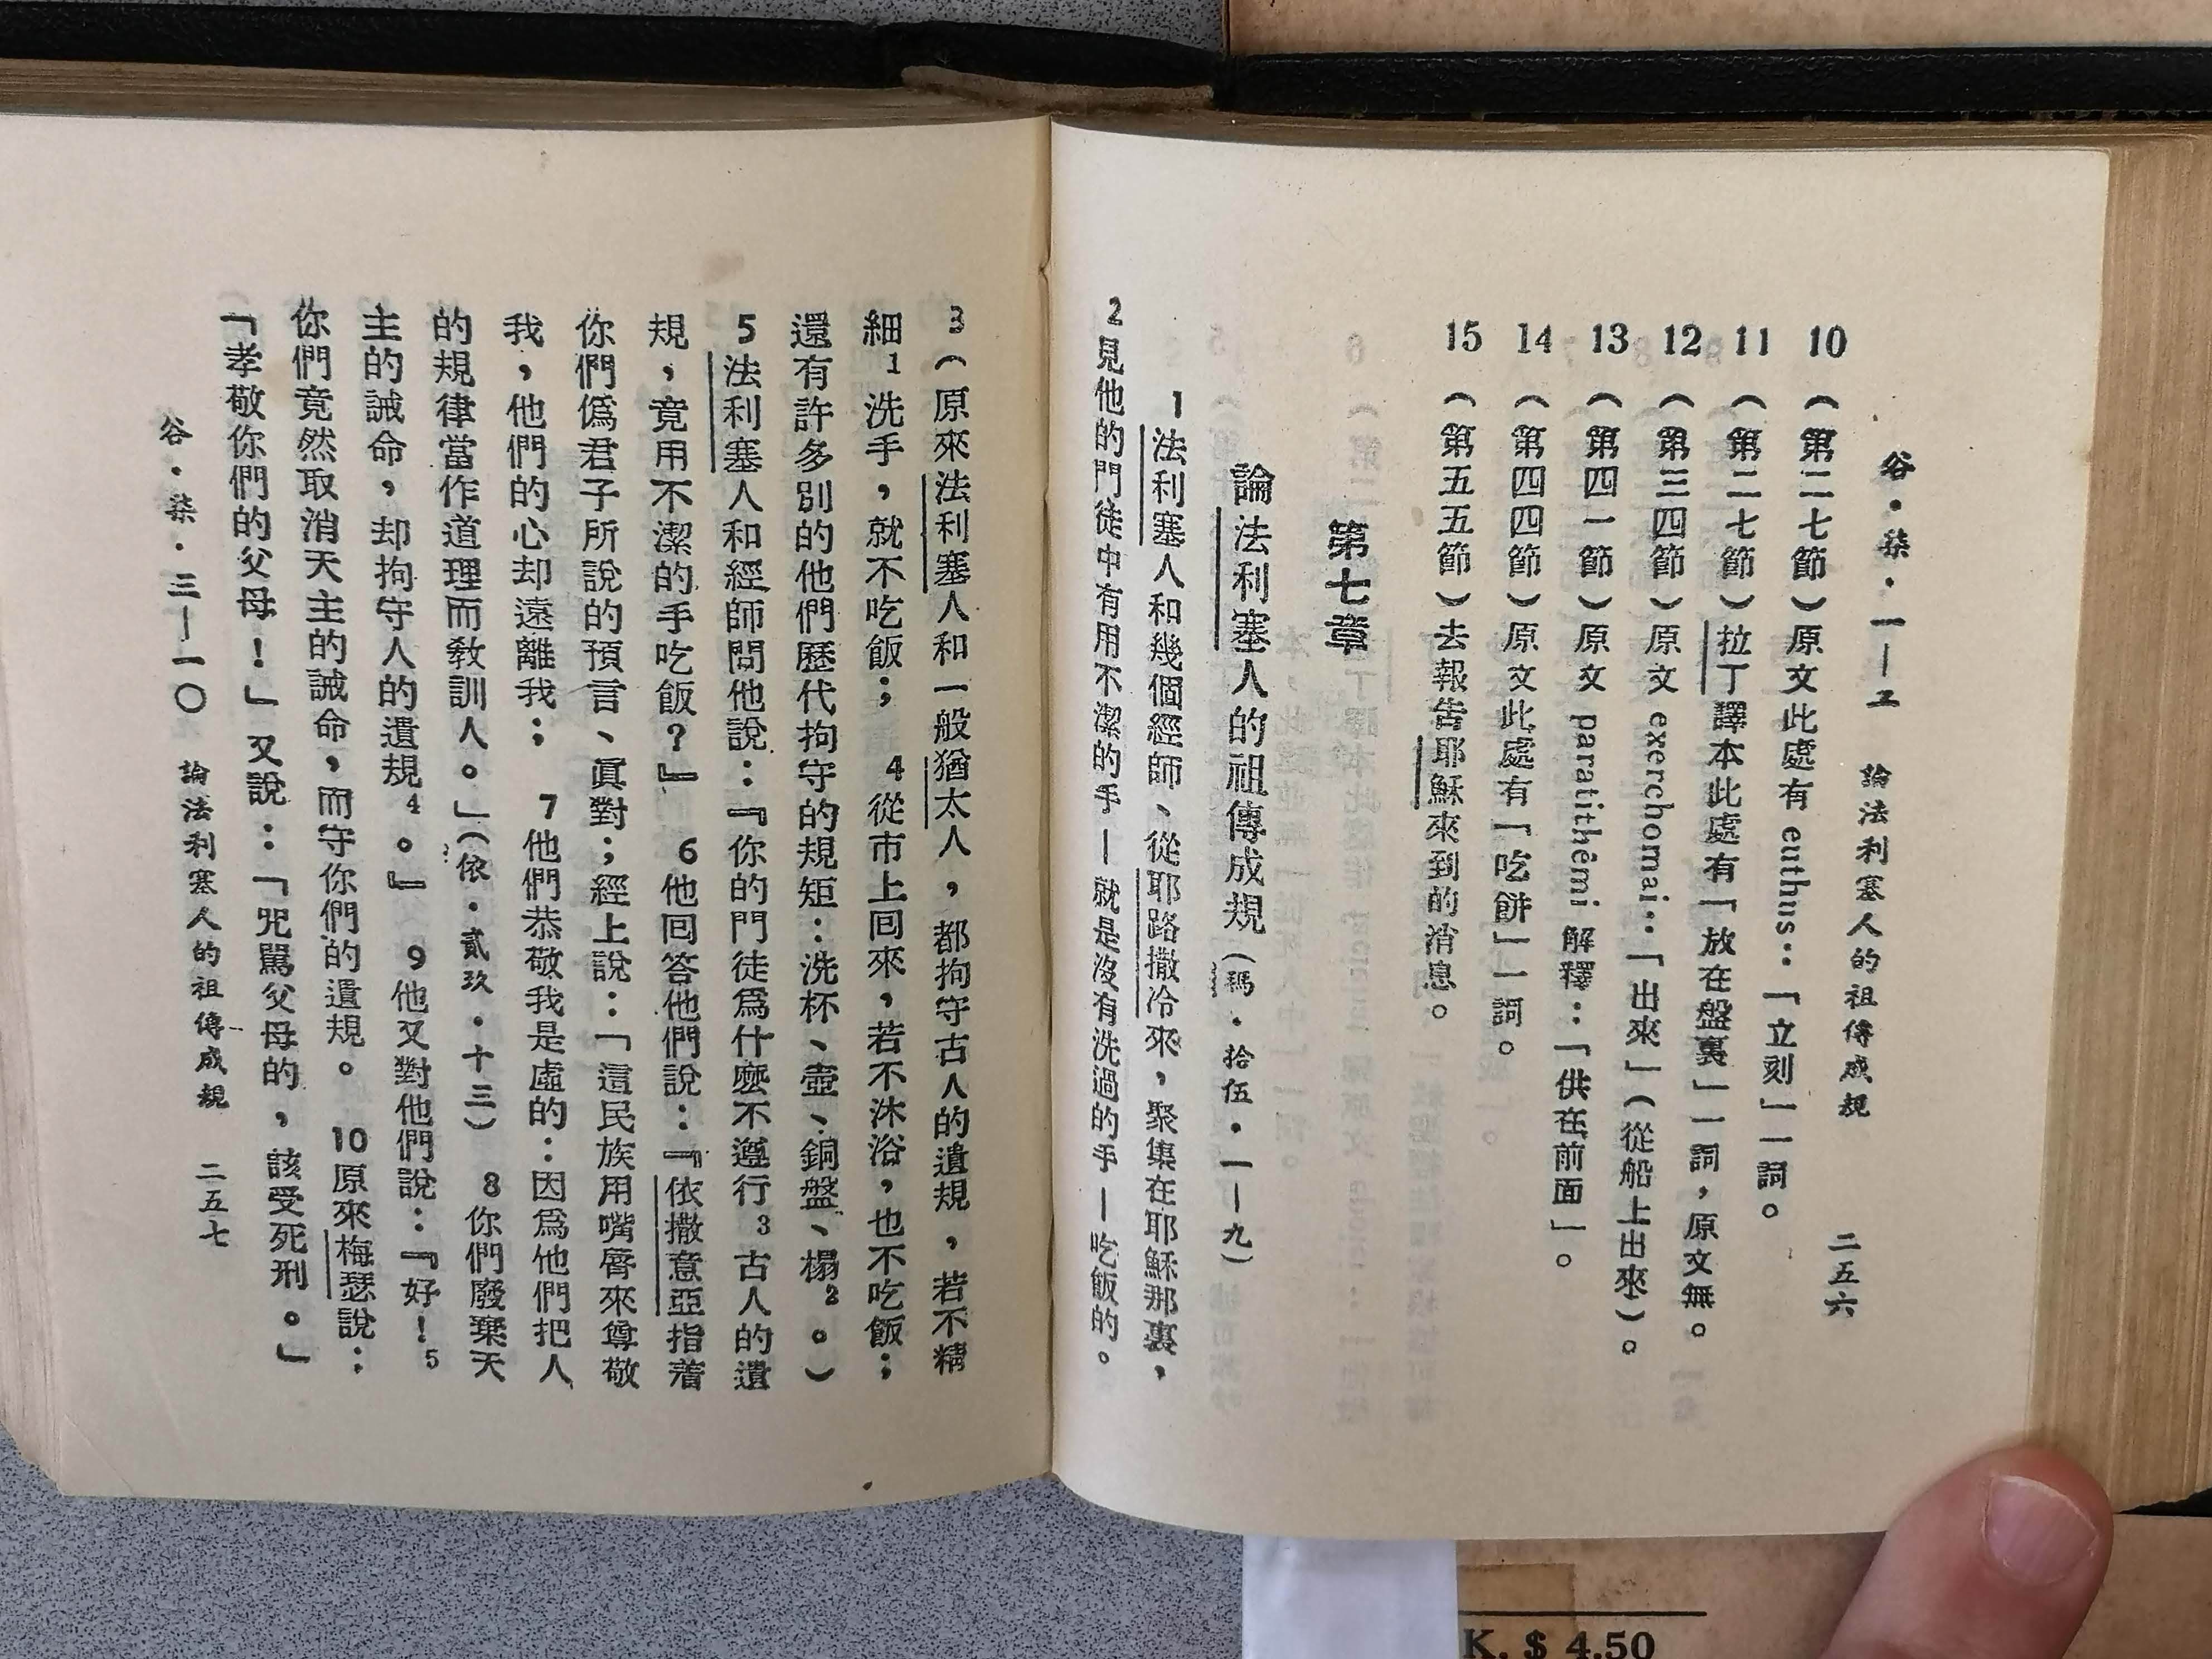 谷．柒．一—二　論法利塞人的祖傳成規　二五六
10（第二七節）原文此處有 enthus：「立刻」一詞。
11（第二七節）拉丁譯本此處有「放在盤裏」一詞，原文無。
12（第三四節）原文 exerchomai：「出來」（從船上出來）。
13（第四一節）原文 paratithēmi 解釋：「供在前面」。
14（第四四節）原文此處有「吃餅」一詞。
15（第五五節）去報告耶穌來到的消息。
第七章
論法利塞人的祖傳成規（瑪．拾伍．一—九）
1法利塞人和幾個經師、從耶路撒冷來，聚集在耶穌那裏，
2見他的門徒中有用不潔的手—就是沒有洗過的手—吃飯的。
3（原來法利塞人和一般猶太人，都拘守古人的遺規，若不精
細1洗手，就不吃飯；　4從市上回來，若不沐浴，也不吃飯；
還有許多別的他們歷代拘守的規矩：洗杯、壺、銅盤、榻2。）
5法利塞人和經師問他說：『你的門徒爲什麽不遵行3古人的遺
規，竟用不潔的手吃飯？』　6他回答他們說：『依撒意亞指着
你們僞君子所說的預言、眞對；經上說：「這民族用嘴脣來尊敬
我，他們的心却遠離我；　7他們恭敬我是虛的：因爲他們把人
的規律當作道理而敎訓人。」（依．貳玖．十三）　8你們廢棄天
主的誡命，却拘守人的遺規4。』　9他又對他們說：『好！5
你們竟然取消天主的誡命，而守你們的遺規。　10原來梅瑟說：
「孝敬你們的父母！」又說：「咒駡父母的，該受死刑。」
谷．柒．三—一〇　論法利塞人的祖傳成規　二五七
K. $ 4.50